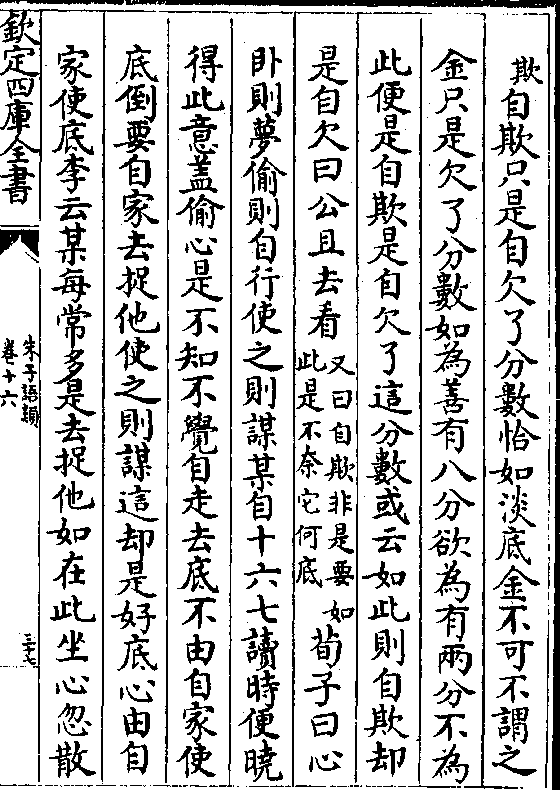 欺自欺只是自欠了分數恰如淡底金不可不謂之
金只是欠了分數如為善有八分欲為有兩分不為
此便是自欺是自欠了這分數或云如此則自欺却
是自欠曰公且去看又曰自欺非是要如
此是不柰它何底荀子曰心
卧則夢偷則自行使之則謀某自十六七讀時便曉
得此意葢偷心是不知不覺自走去底不由自家使
底倒要自家去捉他使之則謀這却是好底心由自
家使底李云某每常多是去捉他如在此坐心忽散
欽定四庫全書
朱子語類
卷十六
三十七